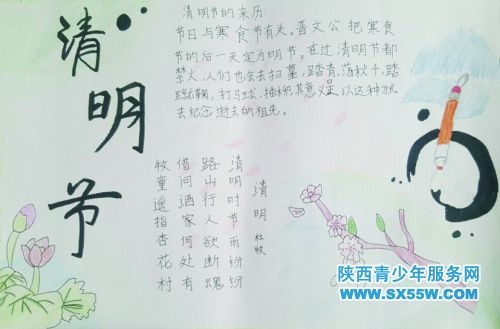 清明节
清明节的来历:
节日与寒食节有关。晋文公把寒食
节的后一天定为明节。在过清明节都
禁火,人们也会去扫墓,踏青,荡秋千,踏
蹴鞠,打马球、抽柳.其意义是以这种方式
去纪念逝去的祖先。
清明 杜牧
清明时节雨纷纷
路山行人欲断魂
借问洒家何处有
牧童遥指杏花村
陕西青少年服务网
www.sx55w.com